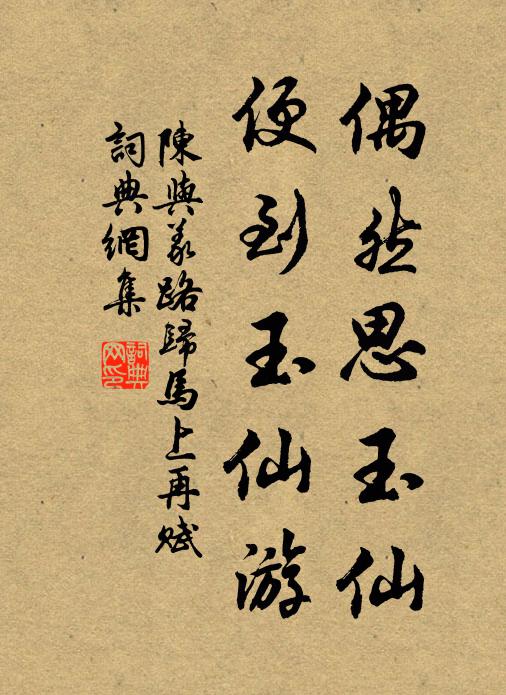 偶然思玉仙
便到玉仙游
陳與义路歸馬上再赋
詞典網集
詞典网印